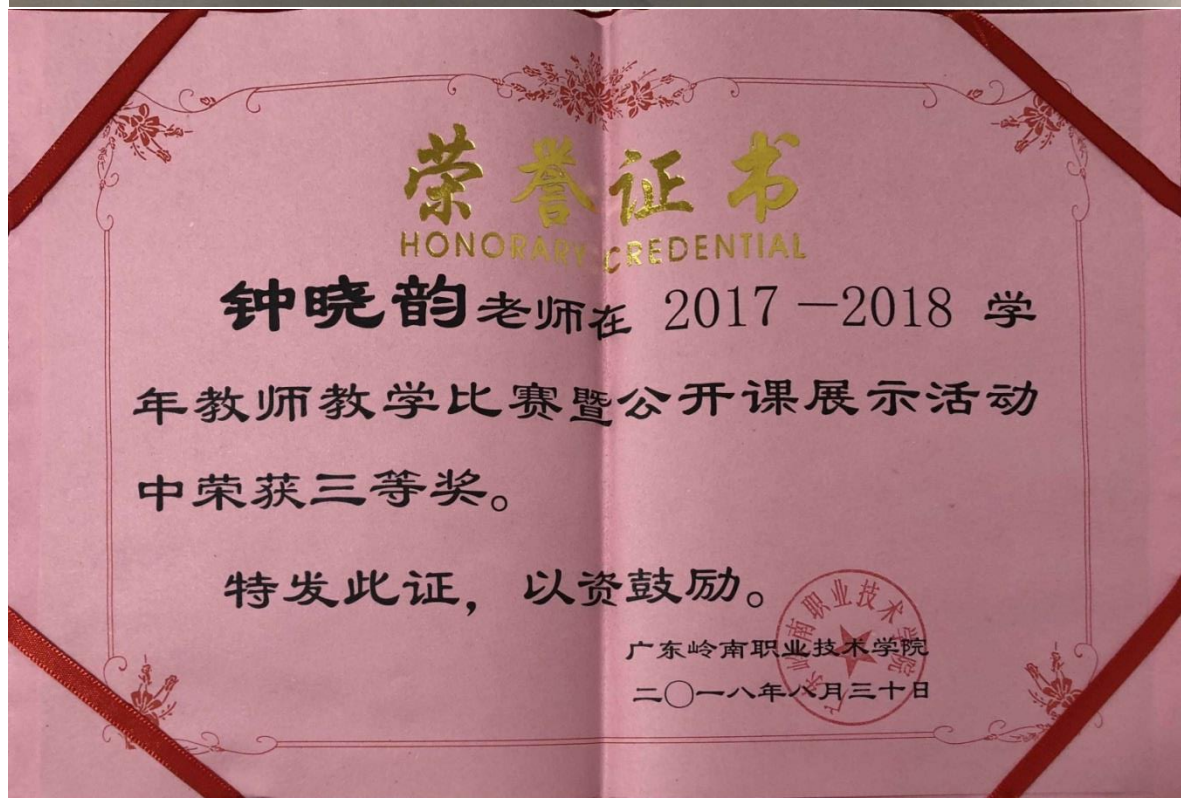 荣誉证书
HONORARY CREDENTIAL
钟晓韵老师在 2017－2018 学
年教师教学比赛暨公开课展示活动
中荣获三等奖。
特发此证，以资鼓励。
广东岭南职业技术学院
二〇一八年八月三十日
广东岭南职业技术学院